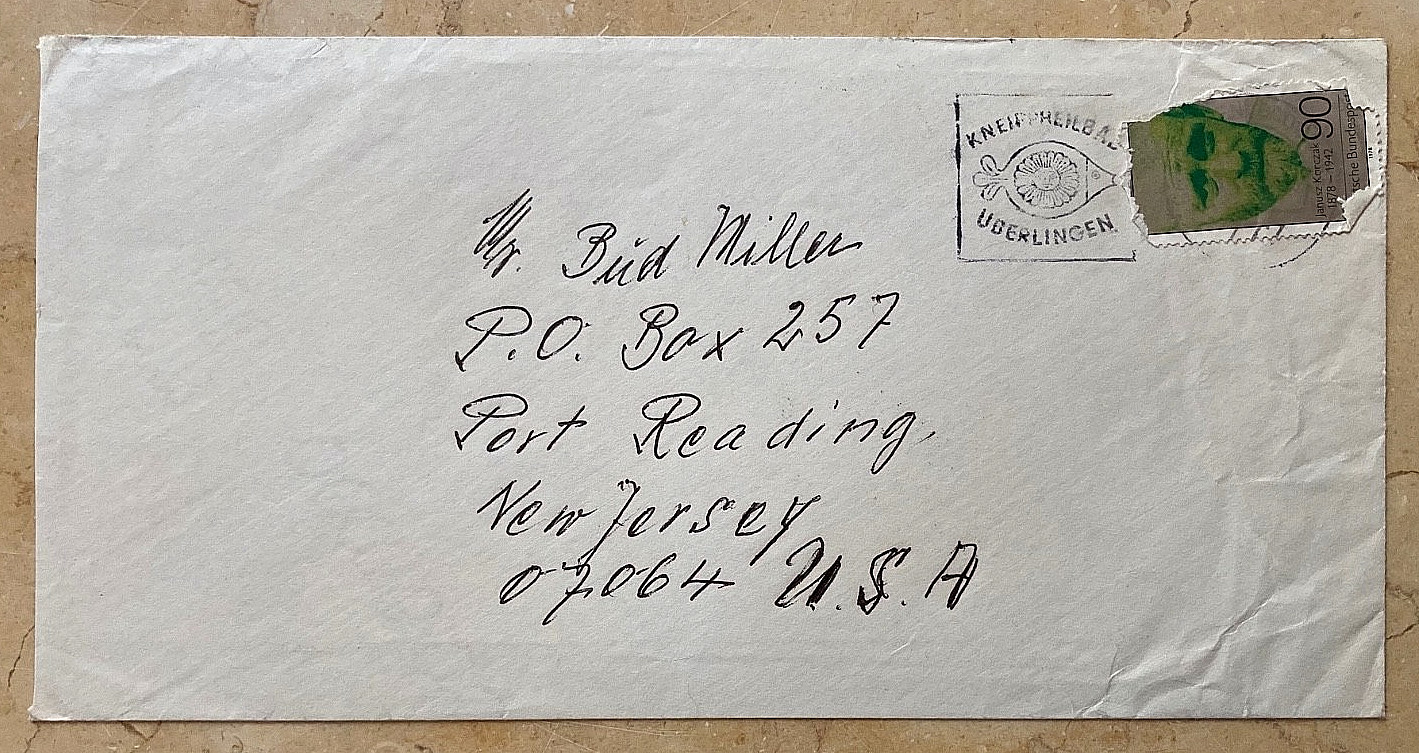 KNEIPPHEILBAD
ÜBERLINGEN
90
Janusz Korczak
1878–1942
sche Bundespos
Mr. Bud Miller
P.O. Box 257
Port Reading,
New Jersey
07064 U.S.A